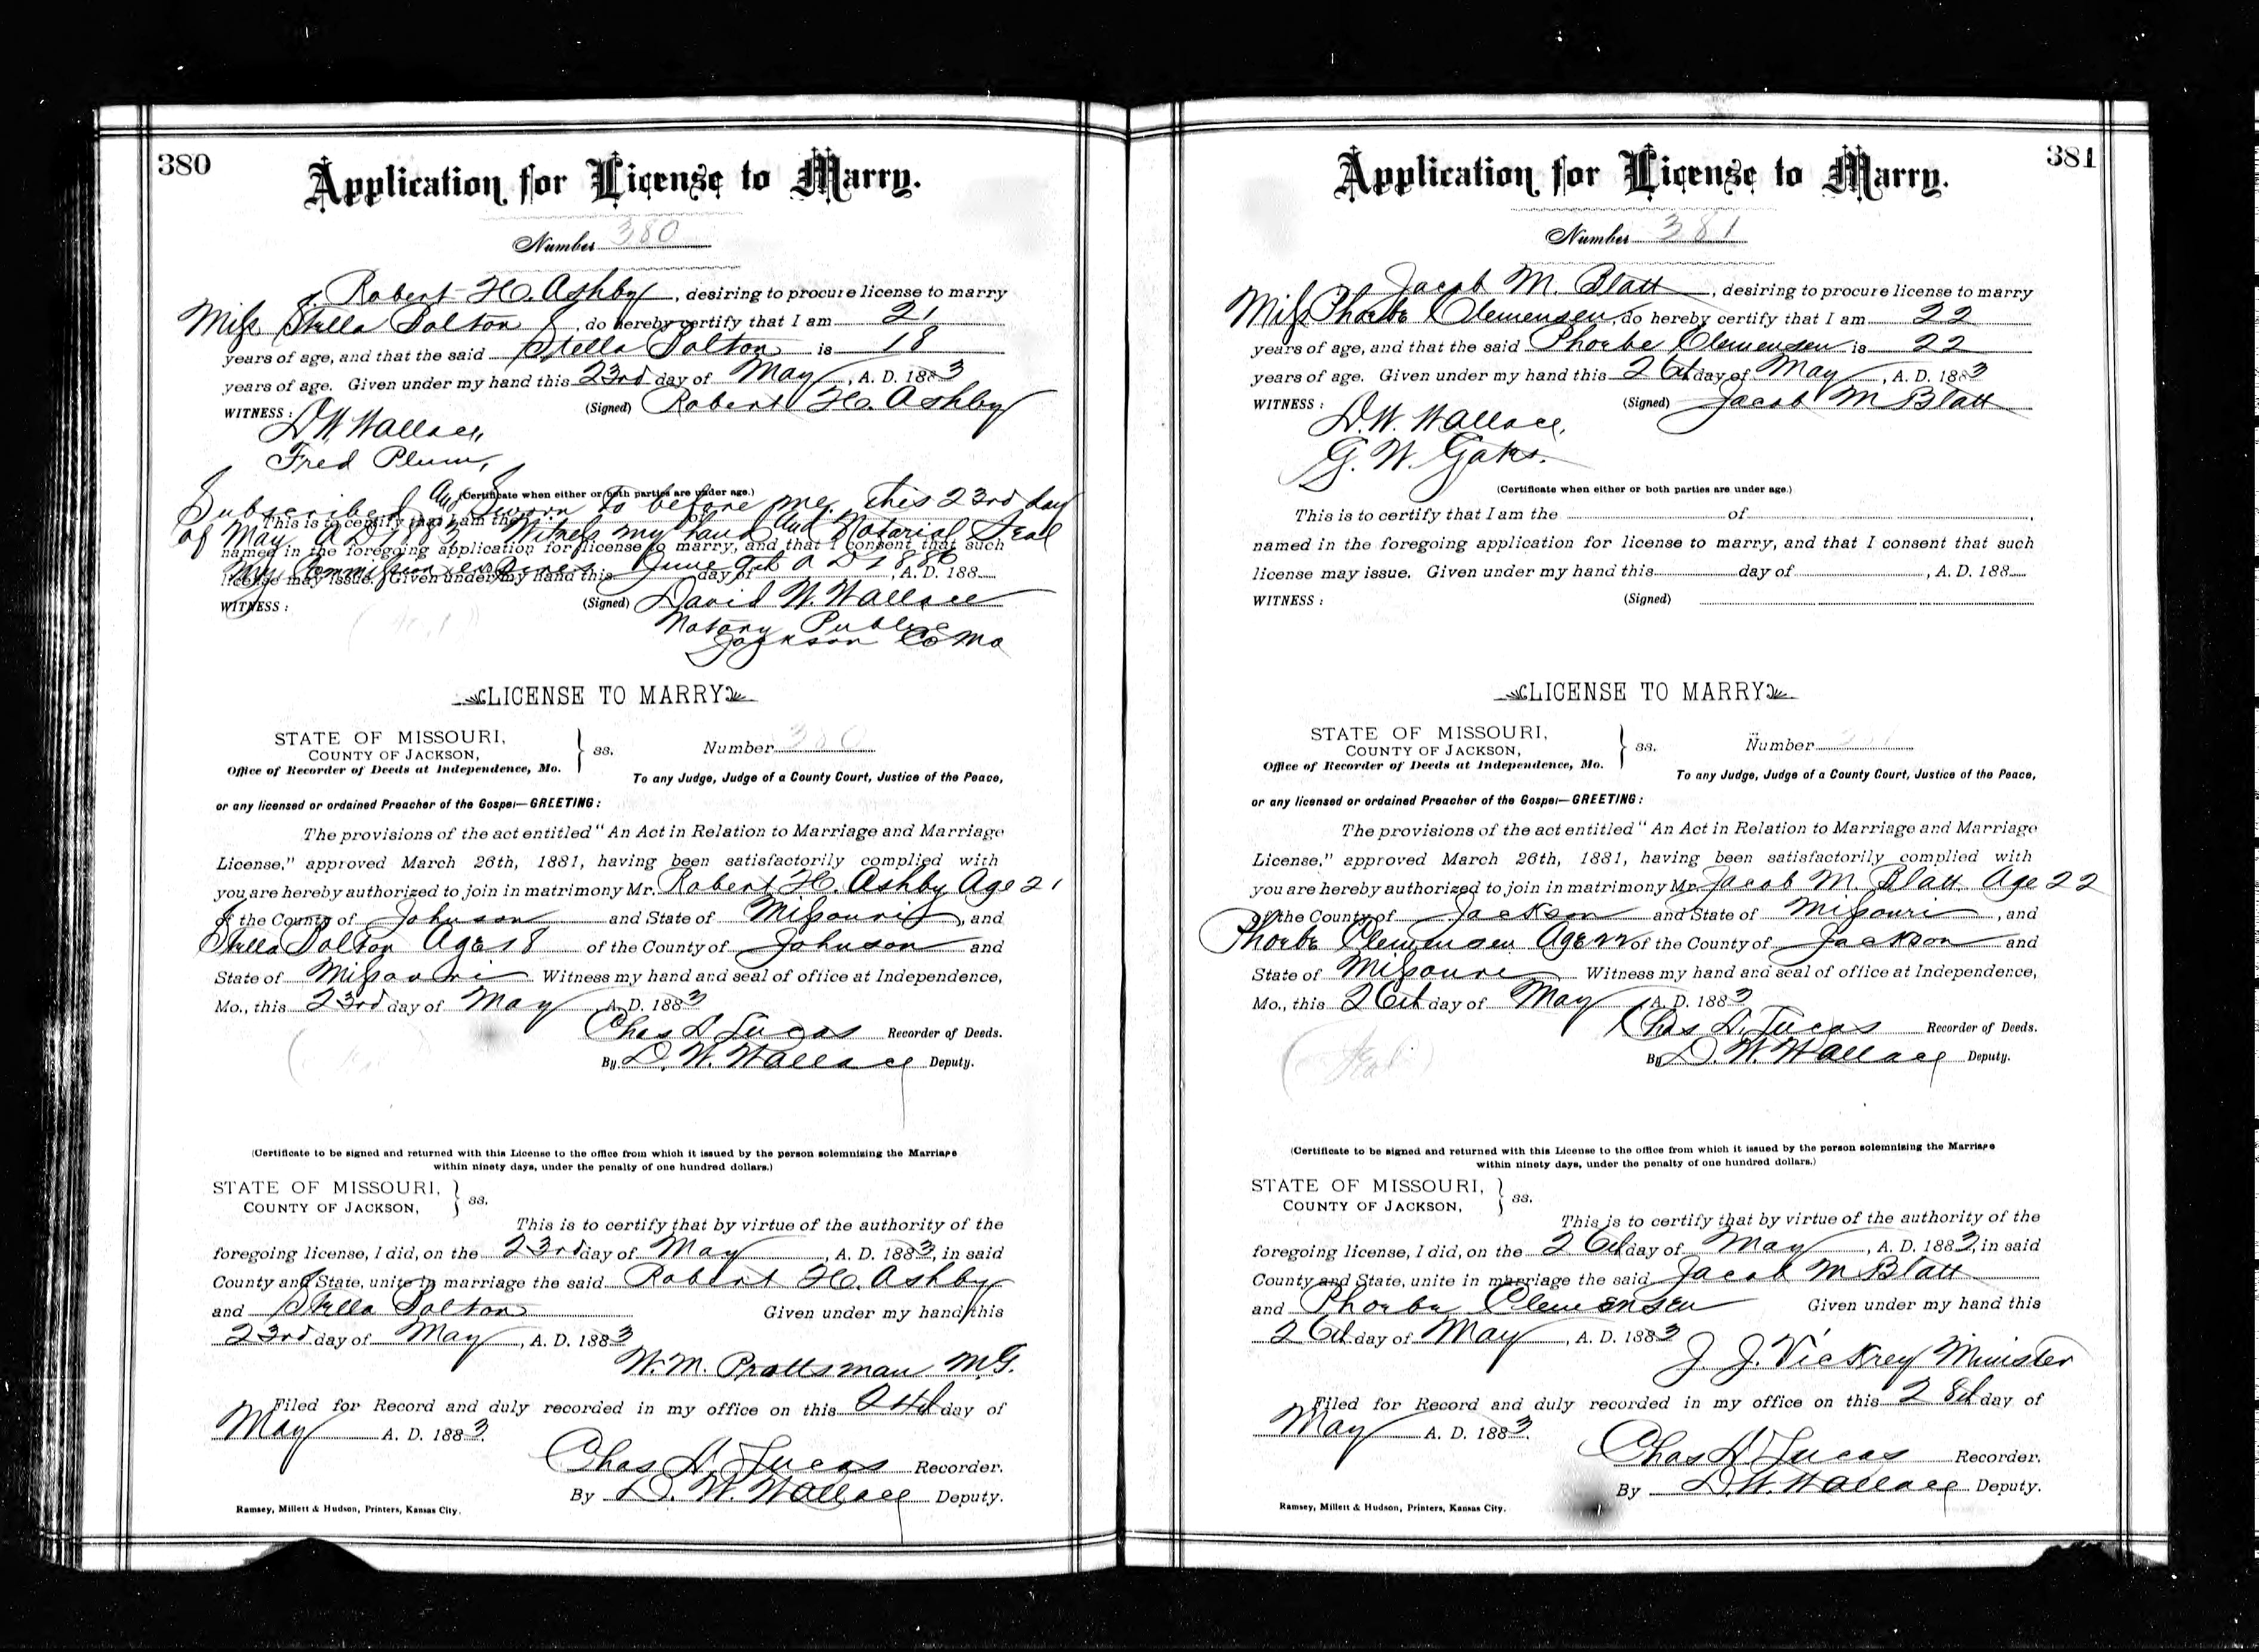 380
Application for License to Marry.
Number 380
I, Robert H. Ashby, desiring to procure license to marry
Miss Stella Dalton, do hereby certify that I am 21
years of age, and that the said Stella Dalton is 18
years of age. Given under my hand this 23rd day of May, A. D. 1883
WITNESS: (Signed) Robert H. Ashby
D. W. Wallace,
Fred Plum,
(Certificate when either or both parties are under age.)
Subscribed And Sworn to before me, this 23rd day
This is to certify that I am the of
of May A D 1883 Witness my hand And Notarial Seal
named in the foregoing application for license to marry, and that I consent that such
My Commission expires June 9th A D
license may issue. Given under my hand this day of , A. D. 188
WITNESS: (Signed) David W. Wallace
Notary Public
Jackson Co Mo
LICENSE TO MARRY
STATE OF MISSOURI,
COUNTY OF JACKSON, ss. Number 380
Office of Recorder of Deeds at Independence, Mo.
To any Judge, Judge of a County Court, Justice of the Peace,
or any licensed or ordained Preacher of the Gospel—GREETING:
The provisions of the act entitled "An Act in Relation to Marriage and Marriage
License," approved March 26th, 1881, having been satisfactorily complied with
you are hereby authorized to join in matrimony Mr. Robert H. Ashby Age 21
of the County of Johnson and State of Missouri, and
Stella Dalton Age 18 of the County of Johnson and
State of Missouri Witness my hand and seal of office at Independence,
Mo., this 23rd day of May A. D. 1883
Chas H. Lucas Recorder of Deeds.
By D. W. Wallace Deputy.
(Certificate to be signed and returned with this License to the office from which it issued by the person solemnizing the Marriage
within ninety days, under the penalty of one hundred dollars.)
STATE OF MISSOURI,
COUNTY OF JACKSON, ss.
This is to certify that by virtue of the authority of the
foregoing license, I did, on the 23rd day of May, A. D. 1883, in said
County and State, unite in marriage the said Robert H. Ashby
and Stella Dalton Given under my hand this
23rd day of May, A. D. 1883
W. M. Prottsman M.G.
Filed for Record and duly recorded in my office on this 24th day of
May A. D. 1883.
Chas H. Lucas Recorder.
By D. W. Wallace Deputy.
Ramsey, Millett & Hudson, Printers, Kansas City.
381
Application for License to Marry.
Number 381
Jacob M. Blatt, desiring to procure license to marry
Miss Phoebe Clemensen, do hereby certify that I am 22
years of age, and that the said Phoebe Clemensen is 22
years of age. Given under my hand this 26th day of May, A. D. 1883
WITNESS: (Signed) Jacob M Blatt
D. W. Wallace,
G. W. Gates.
(Certificate when either or both parties are under age.)
This is to certify that I am the of ,
named in the foregoing application for license to marry, and that I consent that such
license may issue. Given under my hand this day of , A. D. 188
WITNESS: (Signed)
LICENSE TO MARRY
STATE OF MISSOURI,
COUNTY OF JACKSON, ss. Number 381
Office of Recorder of Deeds at Independence, Mo.
To any Judge, Judge of a County Court, Justice of the Peace,
or any licensed or ordained Preacher of the Gospel—GREETING:
The provisions of the act entitled "An Act in Relation to Marriage and Marriage
License," approved March 26th, 1881, having been satisfactorily complied with
you are hereby authorized to join in matrimony Mr. Jacob M. Blatt Age 22
of the County of Jackson and State of Missouri, and
Phoebe Clemensen Age 22 of the County of Jackson and
State of Missouri Witness my hand and seal of office at Independence,
Mo., this 26th day of May A. D. 1883
Chas H. Lucas Recorder of Deeds.
(Seal) By D. W. Wallace Deputy.
(Certificate to be signed and returned with this License to the office from which it issued by the person solemnizing the Marriage
within ninety days, under the penalty of one hundred dollars.)
STATE OF MISSOURI,
COUNTY OF JACKSON, ss.
This is to certify that by virtue of the authority of the
foregoing license, I did, on the 26th day of May, A. D. 1883, in said
County and State, unite in marriage the said Jacob M Blatt
and Phoebe Clemensen Given under my hand this
26th day of May, A. D. 1883
J. J. Vickrey Minister
Filed for Record and duly recorded in my office on this 28th day of
May A. D. 1883.
Chas H. Lucas Recorder.
By D. W. Wallace Deputy.
Ramsey, Millett & Hudson, Printers, Kansas City.